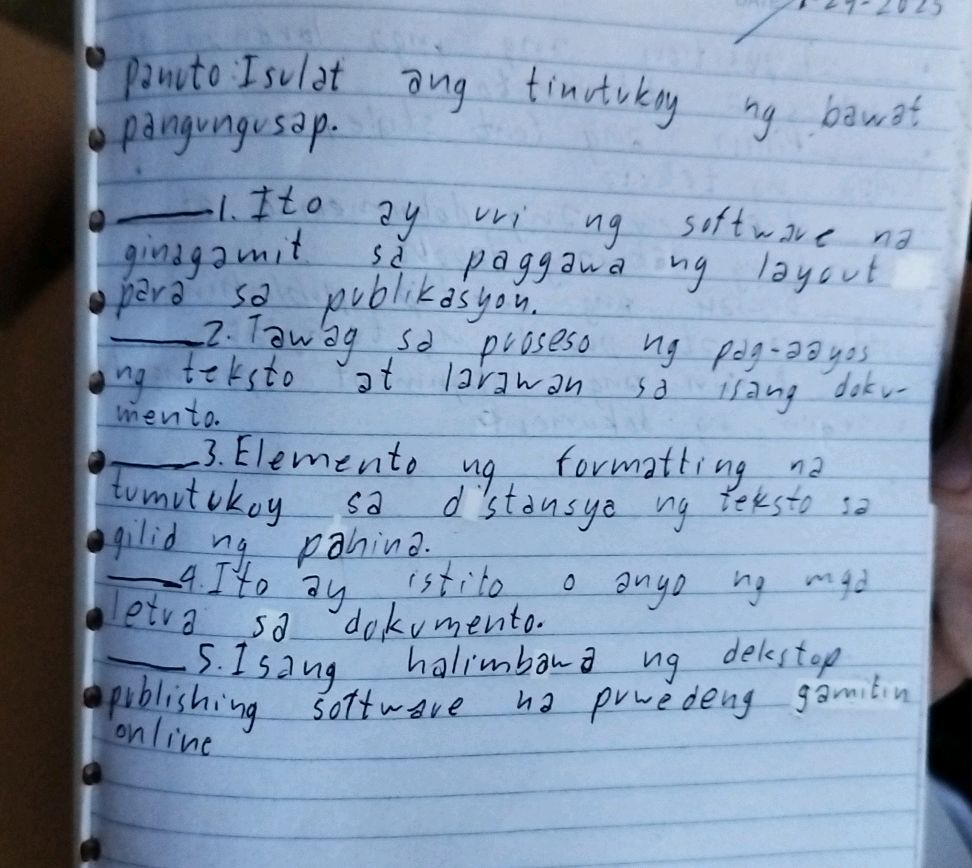 -29-2025
Panuto: Isulat ang tinutukoy ng bawat
pangungusap.
____1. Ito ay uri ng software na
ginagamit sa paggawa ng layout
para sa publikasyon.
____2. Tawag sa proseso ng pag-aayos
ng teksto at larawan sa isang doku-
mento.
____3. Elemento ng formatting na
tumutukoy sa distansya ng teksto sa
gilid ng pahina.
____4. Ito ay istilo o anyo ng mga
letra sa dokumento.
____5. Isang halimbawa ng dekstop
publishing software na puwedeng gamitin
online